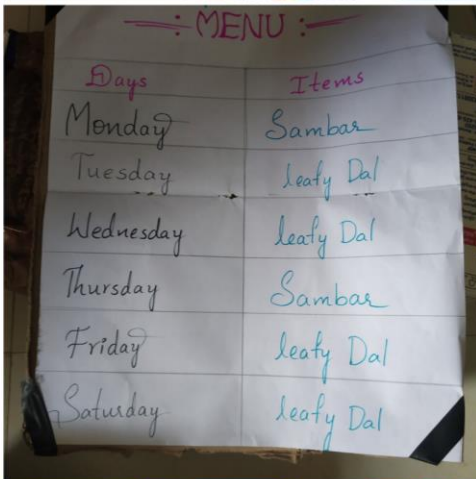 —: MENU :—
Days Items
Monday Sambar
Tuesday leafy Dal
Wednesday leafy Dal
Thursday Sambar
Friday leafy Dal
Saturday leafy Dal